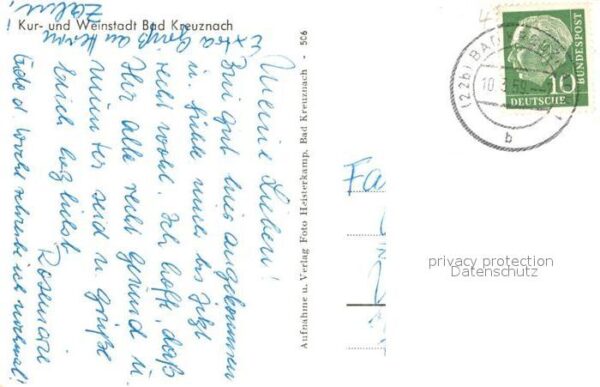 Kur- und Weinstadt Bad Kreuznach
Extra Gruß an Herrn
Meine Lieben!
Bin gut hier angekommen
u. fühle mich bis jetzt
recht wohl. Ich hoffe, daß
Ihr alle recht gesund u.
munter seid u. grüße
Euch herzlichst
Rosemarie
Ende d. Woche schreibe ich nochmal!
Aufnahme u. Verlag Foto Heisterkamp, Bad Kreuznach - 506
Fa
(22b) BAD
b
10
DEUTSCHE
BUNDESPOST
privacy protection
Datenschutz